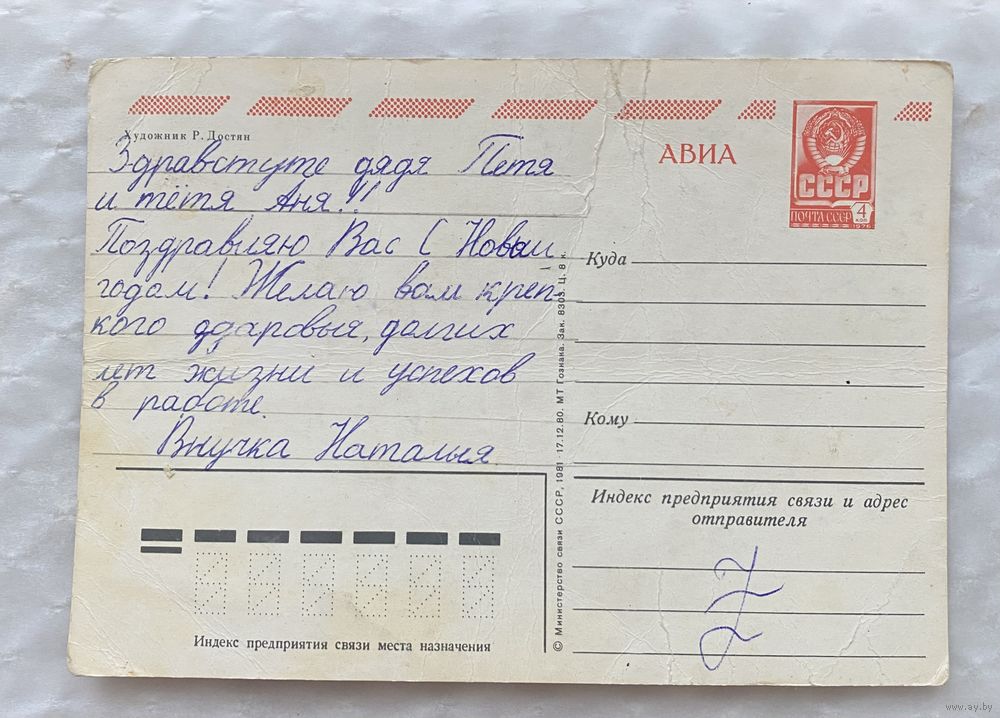 Художник Р. Достян
Здравствуте дядя Петя
и тётя Аня!!
Поздравляю Вас С Новым
годом! Желаю вам креп-
кого здаровья, долгих
лет жизни и успехов
в работе.
Внучка Наталья
АВИА
СССР
ПОЧТА СССР
4
коп
1976
Куда
Кому
Индекс предприятия связи и адрес
отправителя
Индекс предприятия связи места назначения
© Министерство связи СССР, 1981 17.12.80. МТ Гознака. Зак. 8303. Ц. 8 к.
www.ay.by